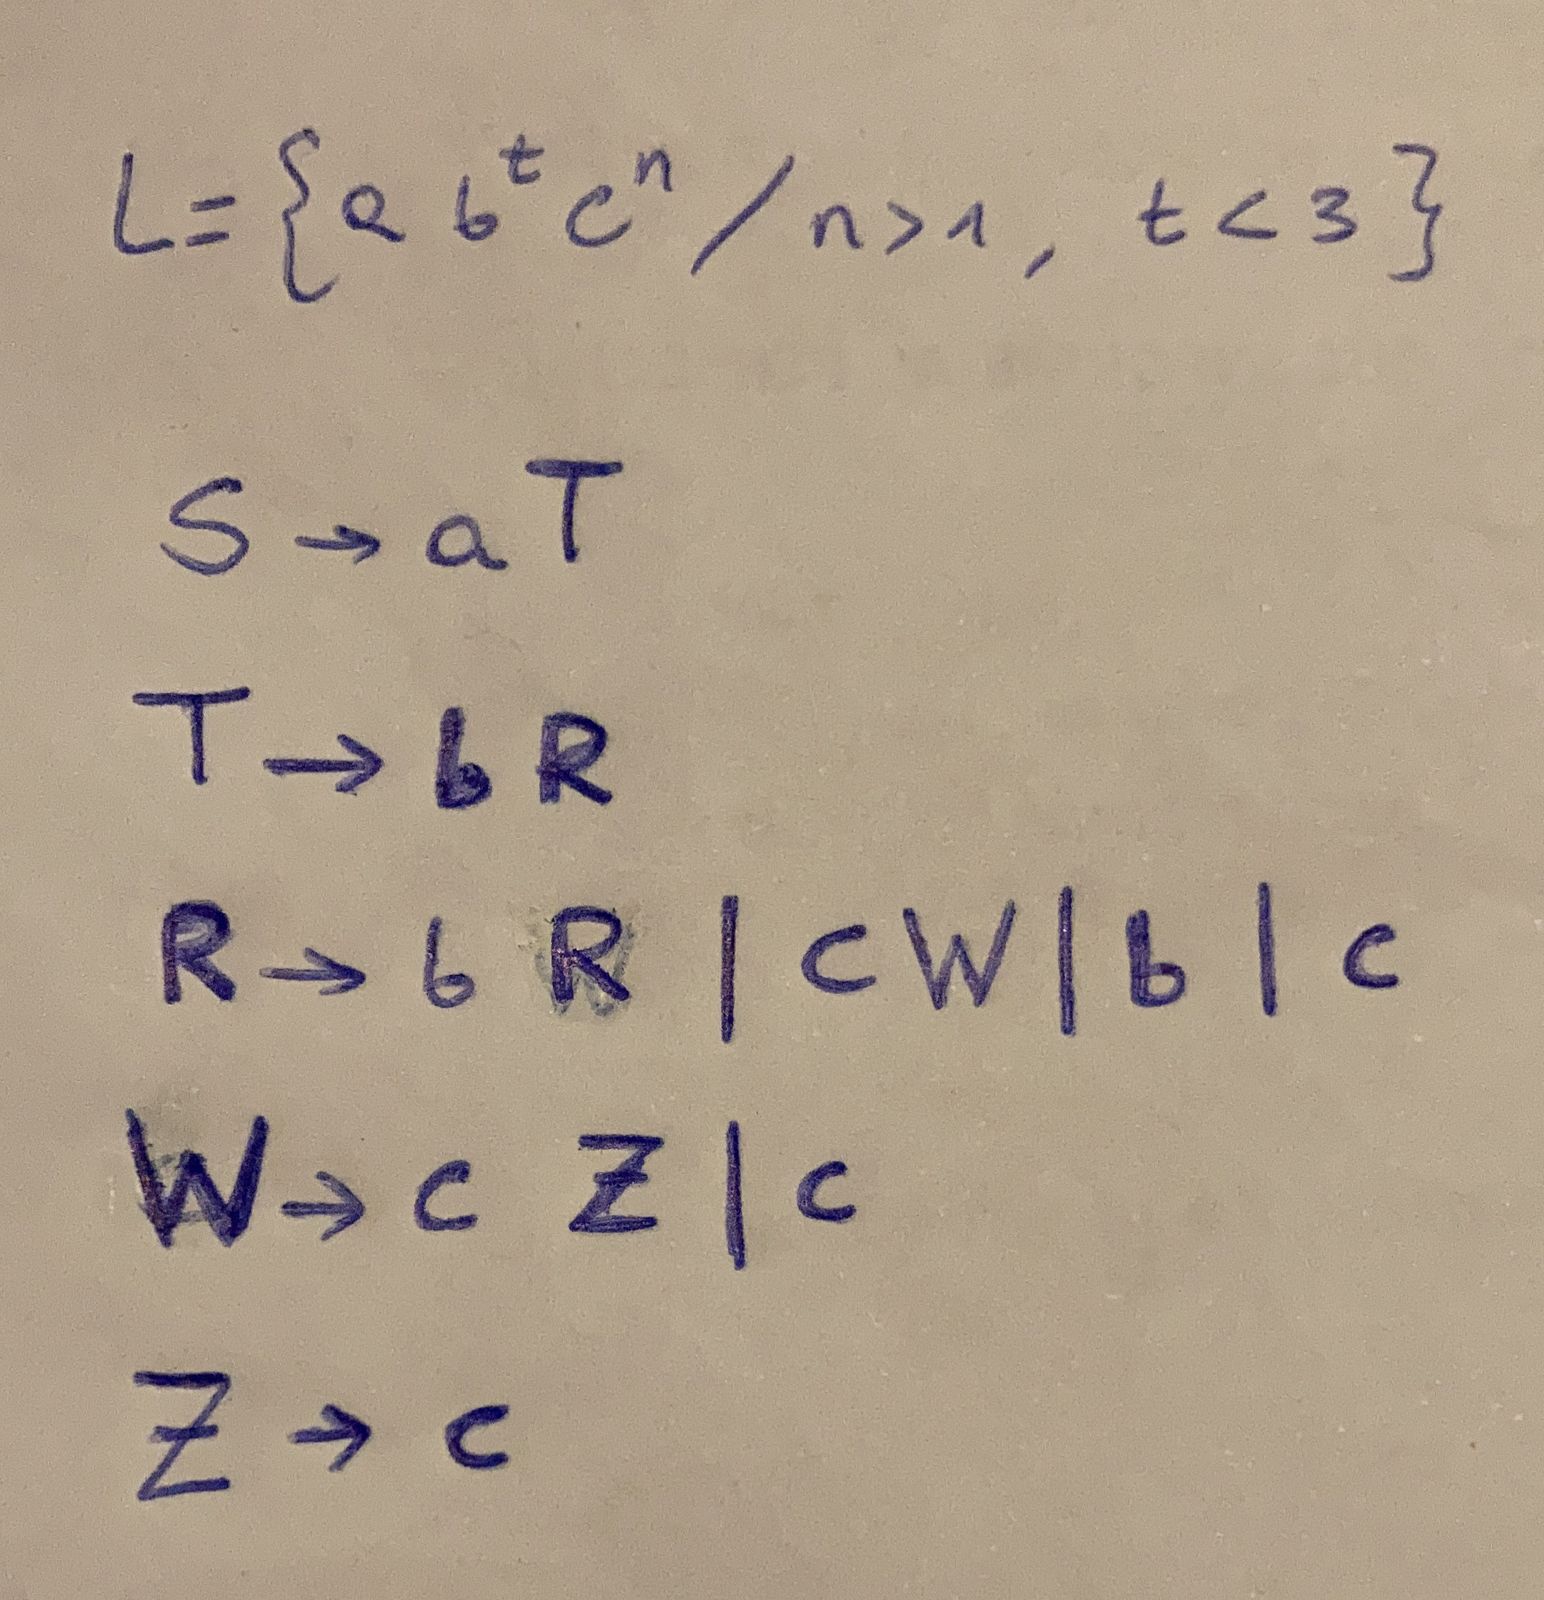 L={a b^t c^n / n>1, t<3}
S → a T
T → b R
R → b R | c W | b | c
W → c Z | c
Z → c